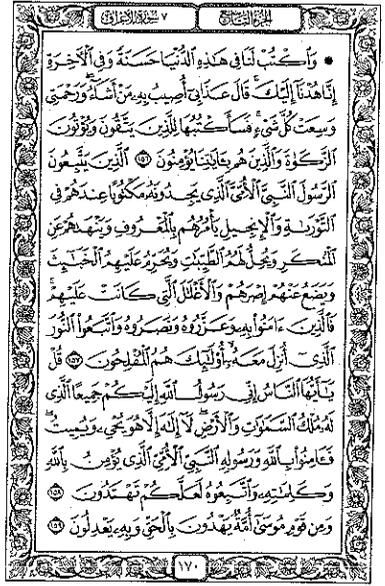 الجزء التاسع ٧ سورة الأعراف
۞ وَٱكْتُبْ لَنَا فِى هَٰذِهِ ٱلدُّنْيَا حَسَنَةً وَفِى ٱلْأَخِرَةِ
إِنَّا هُدْنَآ إِلَيْكَ ۚ قَالَ عَذَابِىٓ أُصِيبُ بِهِۦ مَنْ أَشَآءُ ۖ وَرَحْمَتِى
وَسِعَتْ كُلَّ شَىْءٍ ۚ فَسَأَكْتُبُهَا لِلَّذِينَ يَتَّقُونَ وَيُؤْتُونَ
ٱلزَّكَوٰةَ وَٱلَّذِينَ هُم بِـَٔايَٰتِنَا يُؤْمِنُونَ ١٥٦ ٱلَّذِينَ يَتَّبِعُونَ
ٱلرَّسُولَ ٱلنَّبِىَّ ٱلْأُمِّىَّ ٱلَّذِى يَجِدُونَهُۥ مَكْتُوبًا عِندَهُمْ فِى
ٱلتَّوْرَىٰةِ وَٱلْإِنجِيلِ يَأْمُرُهُم بِٱلْمَعْرُوفِ وَيَنْهَىٰهُمْ عَنِ
ٱلْمُنكَرِ وَيُحِلُّ لَهُمُ ٱلطَّيِّبَٰتِ وَيُحَرِّمُ عَلَيْهِمُ ٱلْخَبَٰٓئِثَ
وَيَضَعُ عَنْهُمْ إِصْرَهُمْ وَٱلْأَغْلَٰلَ ٱلَّتِى كَانَتْ عَلَيْهِمْ ۚ
فَٱلَّذِينَ ءَامَنُوا۟ بِهِۦ وَعَزَّرُوهُ وَنَصَرُوهُ وَٱتَّبَعُوا۟ ٱلنُّورَ
ٱلَّذِىٓ أُنزِلَ مَعَهُۥٓ ۙ أُو۟لَٰٓئِكَ هُمُ ٱلْمُفْلِحُونَ ١٥٧ قُلْ
يَٰٓأَيُّهَا ٱلنَّاسُ إِنِّى رَسُولُ ٱللَّهِ إِلَيْكُمْ جَمِيعًا ٱلَّذِى
لَهُۥ مُلْكُ ٱلسَّمَٰوَٰتِ وَٱلْأَرْضِ ۖ لَآ إِلَٰهَ إِلَّا هُوَ يُحْىِۦ وَيُمِيتُ ۖ
فَـَٔامِنُوا۟ بِٱللَّهِ وَرَسُولِهِ ٱلنَّبِىِّ ٱلْأُمِّىِّ ٱلَّذِى يُؤْمِنُ بِٱللَّهِ
وَكَلِمَٰتِهِۦ وَٱتَّبِعُوهُ لَعَلَّكُمْ تَهْتَدُونَ ١٥٨
وَمِن قَوْمِ مُوسَىٰٓ أُمَّةٌ يَهْدُونَ بِٱلْحَقِّ وَبِهِۦ يَعْدِلُونَ ١٥٩
١٧٠